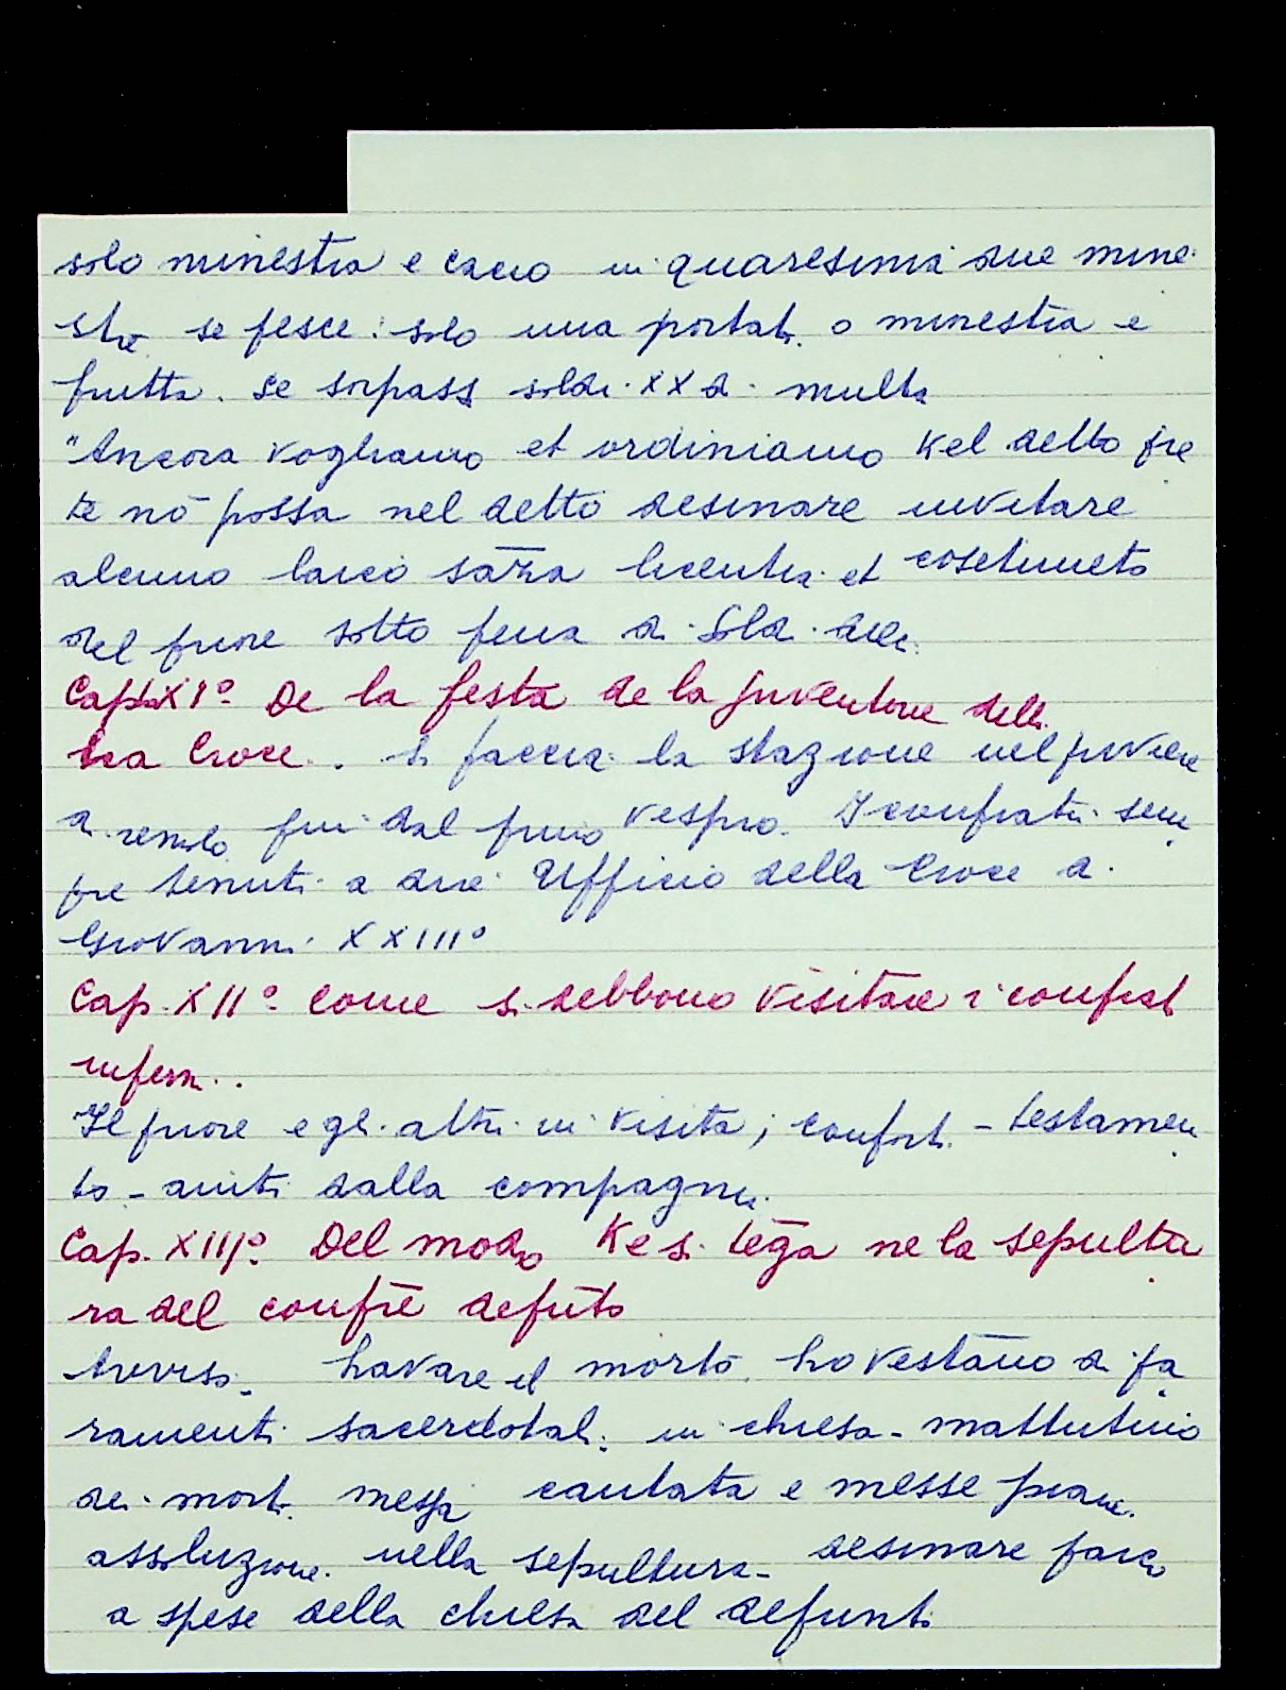 solo minestra e cacio in quaresima due mine
stre se pesce: solo una portata o minestra e
frutta. se sorpassa soldi XX di multa
"Ancora vogliamo et ordiniamo kel detto pre
te nō possa nel detto desinare invitare
alcuno laico sāza licentia et cosetimeto
del priore sotto pena di sold.
Cap. XI° De la festa de la inventione della
sca Croce. si faccia la stazione nel piviere
a fin dal primo vespro. I confrati sem
pre tenuti a dire Ufficio della Croce di
Giovanni XXIII°
Cap. XII° Come si debbono visitare i confrati
infermi.
Il priore e gli altri in visita; conforti - testamen
to - aiuti dalla compagnia.
Cap. XIII° Del modo ke si tēga ne la sepultu
ra del confrē defūto
Avviso. Lavare el morto. Lo vestāno di pa
ramenti sacerdotali: in chiesa - mattutino
dei morti. messa cantata e messe piane.
assoluzione. nella sepultura - desinare parco
a spese della chiesa del defunti